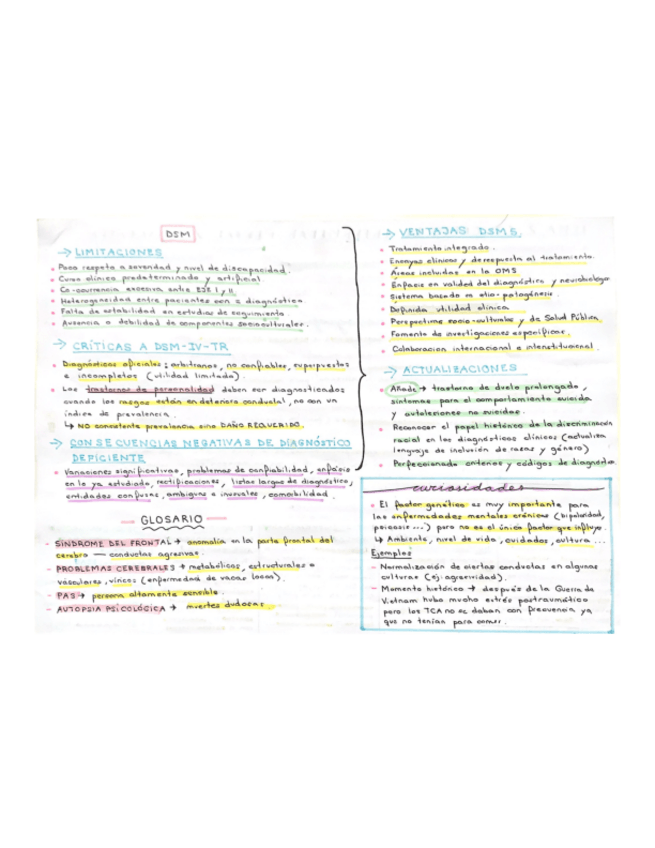 DSM
→ LIMITACIONES
• Poco respeto a severidad y nivel de discapacidad.
• Curso clínico predeterminado y artificial.
• Co-ocurrencia excesiva entre EJE I y II
• Heterogeneidad entre pacientes con = diagnóstico
• Falta de estabilidad en estudios de seguimiento.
• Ausencia o debilidad de componentes socioculturales.
→ CRÍTICAS A DSM-IV-TR
• Diagnósticos oficiales: arbitrarios, no confiables, superpuestos
e incompletos (utilidad limitada).
• Los trastornos de personalidad deben ser diagnosticados
cuando los rasgos están en deterioro conductual, no con un
índice de prevalencia.
↳ NO consistente prevalencia sino DAÑO REQUERIDO.
→ CONSECUENCIAS NEGATIVAS DE DIAGNÓSTICO
DEFICIENTE
• Variaciones significativas, problemas de confiabilidad, énfasis
en lo ya estudiado, rectificaciones, listas largas de diagnóstico,
entidades confusas, ambiguas e inusuales, comorbilidad.
GLOSARIO
- SÍNDROME DEL FRONTAL → anomalía en la parte frontal del
cerebro — conductas agresivas.
- PROBLEMAS CEREBRALES → metabólicos, estructurales =
vasculares, víricos (enfermedad de vacas locas).
- PAS → persona altamente sensible.
- AUTOPSIA PSICOLÓGICA → muertes dudosas.
→ VENTAJAS DSM5
• Tratamiento integrado.
• Ensayos clínicos y de respuesta al tratamiento.
• Áreas incluidas en la OMS
• Énfasis en validez del diagnóstico y neurobiología
• Sistema basado en etio-patogénesis.
• Definida utilidad clínica
• Perspectivas socio-culturales y de Salud Pública.
• Fomento de investigaciones específicas.
• Colaboración internacional e interinstitucional.
→ ACTUALIZACIONES
• Añade → trastorno de duelo prolongado,
síntomas para el comportamiento suicida
y autolesiones no suicidas.
• Reconocer el papel histórico de la discriminación
racial en los diagnósticos clínicos (actualiza
lenguaje de inclusión de razas y género)
• Perfeccionado criterios y códigos de diagnóstico
curiosidades
• El factor genético es muy importante para
las enfermedades mentales crónicas (bipolaridad,
psicosis...) pero no es el único factor que influye.
↳ Ambiente, nivel de vida, cuidados, cultura...
Ejemplos
- Normalización de ciertas conductas en algunas
culturas (ej: agresividad).
- Momento histórico → después de la Guerra de
Vietnam hubo mucho estrés postraumático
pero los TCA no se daban con frecuencia ya
que no tenían para comer.